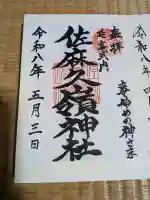 奉拝
延喜式内
佐麻久嶺神社
令和八年五月三日
安やめの神さま
令和八年